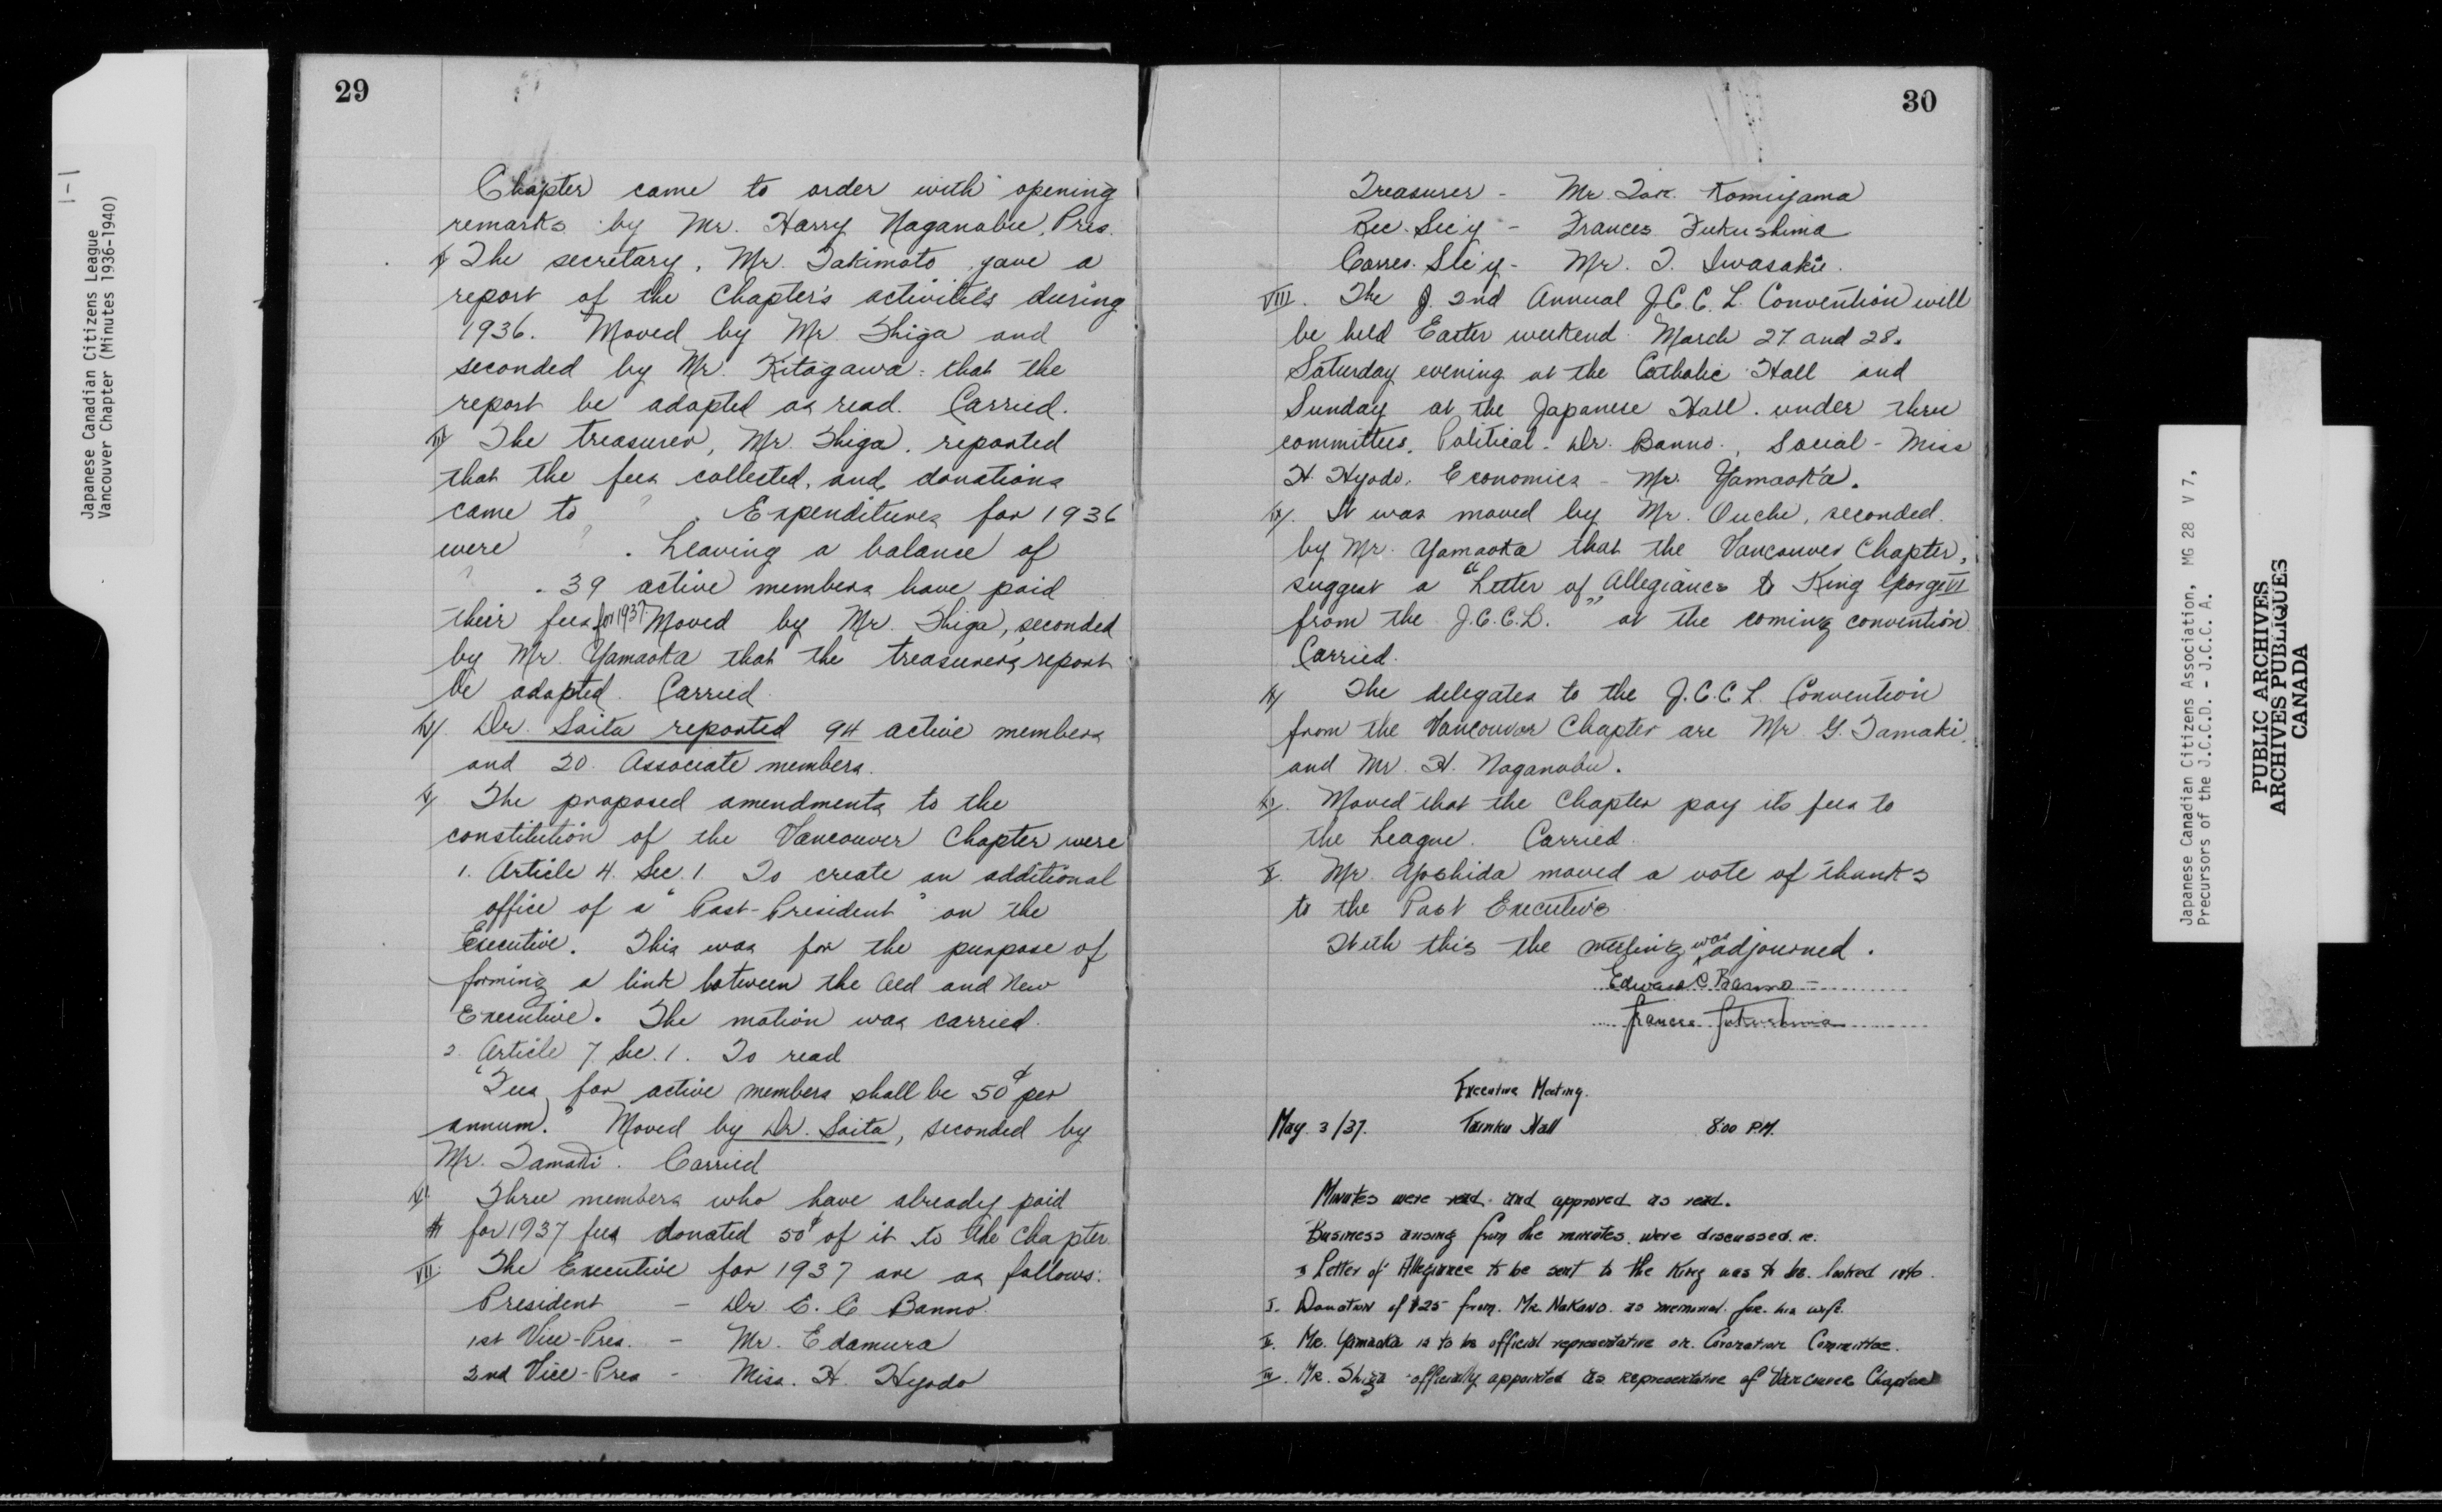 1-1
Japanese Canadian Citizens League
Vancouver Chapter (Minutes 1936-1940)
29
Chapter came to order with opening
remarks by Mr. Harry Naganobu, Pres.
The secretary, Mr. Takimoto gave a
report of the Chapter's activities during
1936. Moved by Mr. Shiga and
seconded by Mr. Kitagawa that the
report be adopted as read. Carried.
The treasurer, Mr. Shiga, reported
that the fees collected, and donations
came to ? . Expenditures for 1936
were ? . Leaving a balance of
? . 39 active members have paid
their fees for 1937. Moved by Mr. Shiga, seconded
by Mr. Yamaoka that the treasurers report
be adopted. Carried.
IV) Dr. Saita reported 94 active members
and 20 Associate members.
V) The proposed amendments to the
constitution of the Vancouver Chapter were
1. Article 4. Sec. 1. To create an additional
office of a "Past-President" on the
Executive. This was for the purpose of
forming a link between the Old and New
Executive. The motion was carried.
2. Article 7. Sec. 1. To read
"Fees for active members shall be 50¢ per
annum." Moved by Dr. Saita, seconded by
Mr. Tamaki. Carried
Three members who have already paid
$1 for 1937 fees donated 50¢ of it to the Chapter
VII. The Executive for 1937 are as follows:
President - Dr. E. C. Banno.
1st Vice-Pres. - Mr. Edamura
2nd Vice-Pres - Miss. H. Hyodo
30
Treasurer - Mr. Tak. Komiyama
Rec. Sec'y - Frances Fukushima
Corres. Sec'y - Mr. T. Iwasaki.
VIII. The 2nd Annual J.C.C.L. Convention will
be held Easter weekend March 27 and 28.
Saturday evening at the Catholic Hall and
Sunday at the Japanese Hall. under three
committees. Political - Dr. Banno., Social - Miss
H. Hyodo, Economics - Mr. Yamaoka.
IX. It was moved by Mr. Ouchi, seconded
by Mr. Yamaoka that the Vancouver Chapter,
suggest a "Letter of Allegiance" to King George VI
from the J.C.C.L. at the coming convention.
Carried.
The delegates to the J.C.C.L. Convention
from the Vancouver Chapter are Mr G. Tamaki
and Mr. H. Naganobu.
Moved that the Chapter pay its fees to
the League. Carried.
X. Mr. Yoshida moved a vote of thanks
to the Past Executive
With this the meeting was adjourned.
Edward C Banno
Frances Fukushima
Executive Meeting.
May 3/37. Hall 8:00 P.M.
Minutes were read and approved as read.
Business arising from the minutes were discussed. ie.
Letter of Allegiance to be sent to the King was to be looked into.
I. Donation of $25 from Mr. Nakano as memorial for his wife.
II. Mr. Yamaoka is to be official representative on Coronation Committee.
III. Mr. Shiga officially appointed as representative of Vancouver Chapter
Japanese Canadian Citizens Association, MG 28 V 7,
Precursors of the J.C.C.D. - J.C.C. A.
PUBLIC ARCHIVES
ARCHIVES PUBLIQUES
CANADA